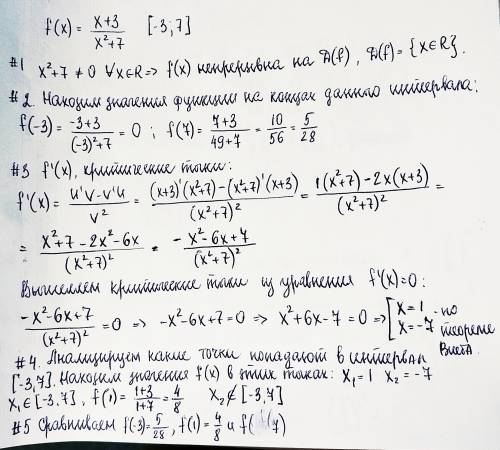 f(x) = x+3 / x²+7 [-3;7]
#1 x²+7 ≠ 0 ∀x∈R => f(x) непрерывна на D(f), D(f)={x∈R}.
#2. Находим значения функции на концах данного интервала:
f(-3) = -3+3 / (-3)²+7 = 0 ; f(7) = 7+3 / 49+7 = 10/56 = 5/28
#3 f'(x), критические точки:
f'(x) = u'v-v'u / v² = (x+3)'(x²+7)-(x²+7)'(x+3) / (x²+7)² = 1(x²+7)-2x(x+3) / (x²+7)² =
= x²+7-2x²-6x / (x²+7)² = -x²-6x+7 / (x²+7)²
Вычисляем критические точки из уравнения f'(x)=0:
-x²-6x+7 / (x²+7)² = 0 => -x²-6x+7=0 => x²+6x-7=0 => [x=1 x=-7 - по теореме Виета.
#4. Анализируем какие точки попадают в интервал
[-3,7]. Находим значения f(x) в этих точках: x₁=1 x₂=-7
x₁∈[-3,7], f(1) = 1+3 / 1+7 = 4/8 x₂∉[-3,7]
#5 Сравниваем f(-3)=5/28, f(1)=4/8 и f( 7)